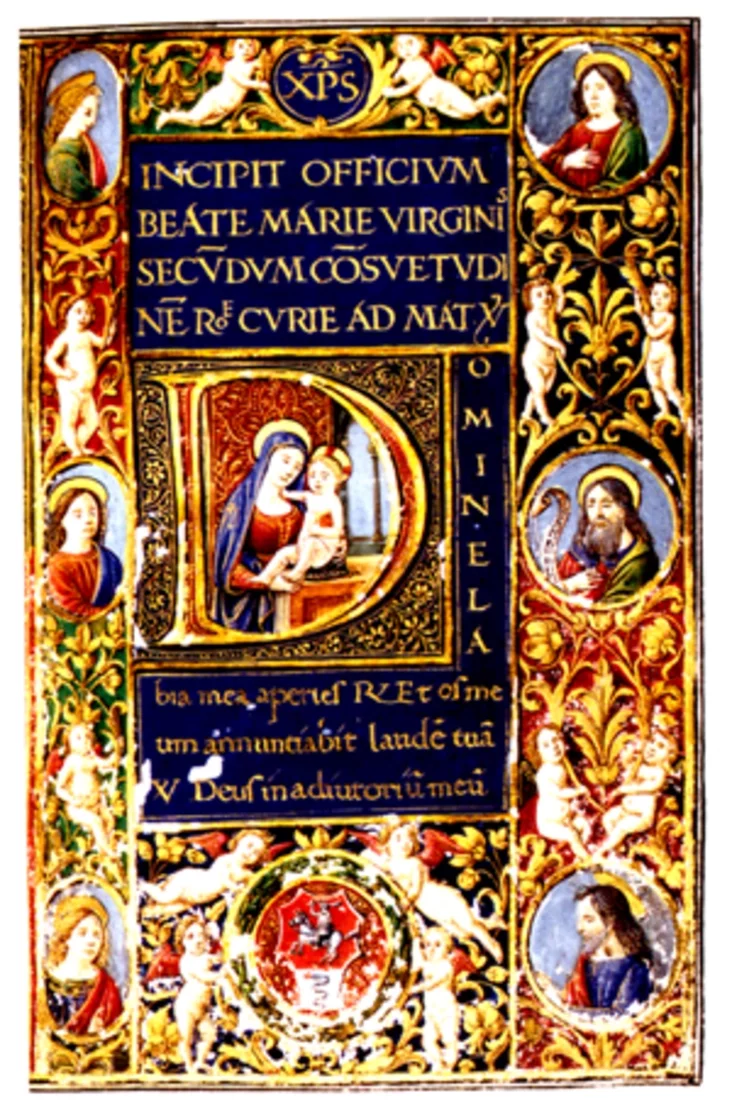 XPS
INCIPIT OFFICIVM
BEATE MARIE VIRGINIS
SECV̄DVM CŌSVETVDI
NĒ RoE CVRIE AD MAT. V
D
OMINE LA
bia mea aperies R Et os me
um annunciabit laudē tuā
V Deus in adiutoriū meū